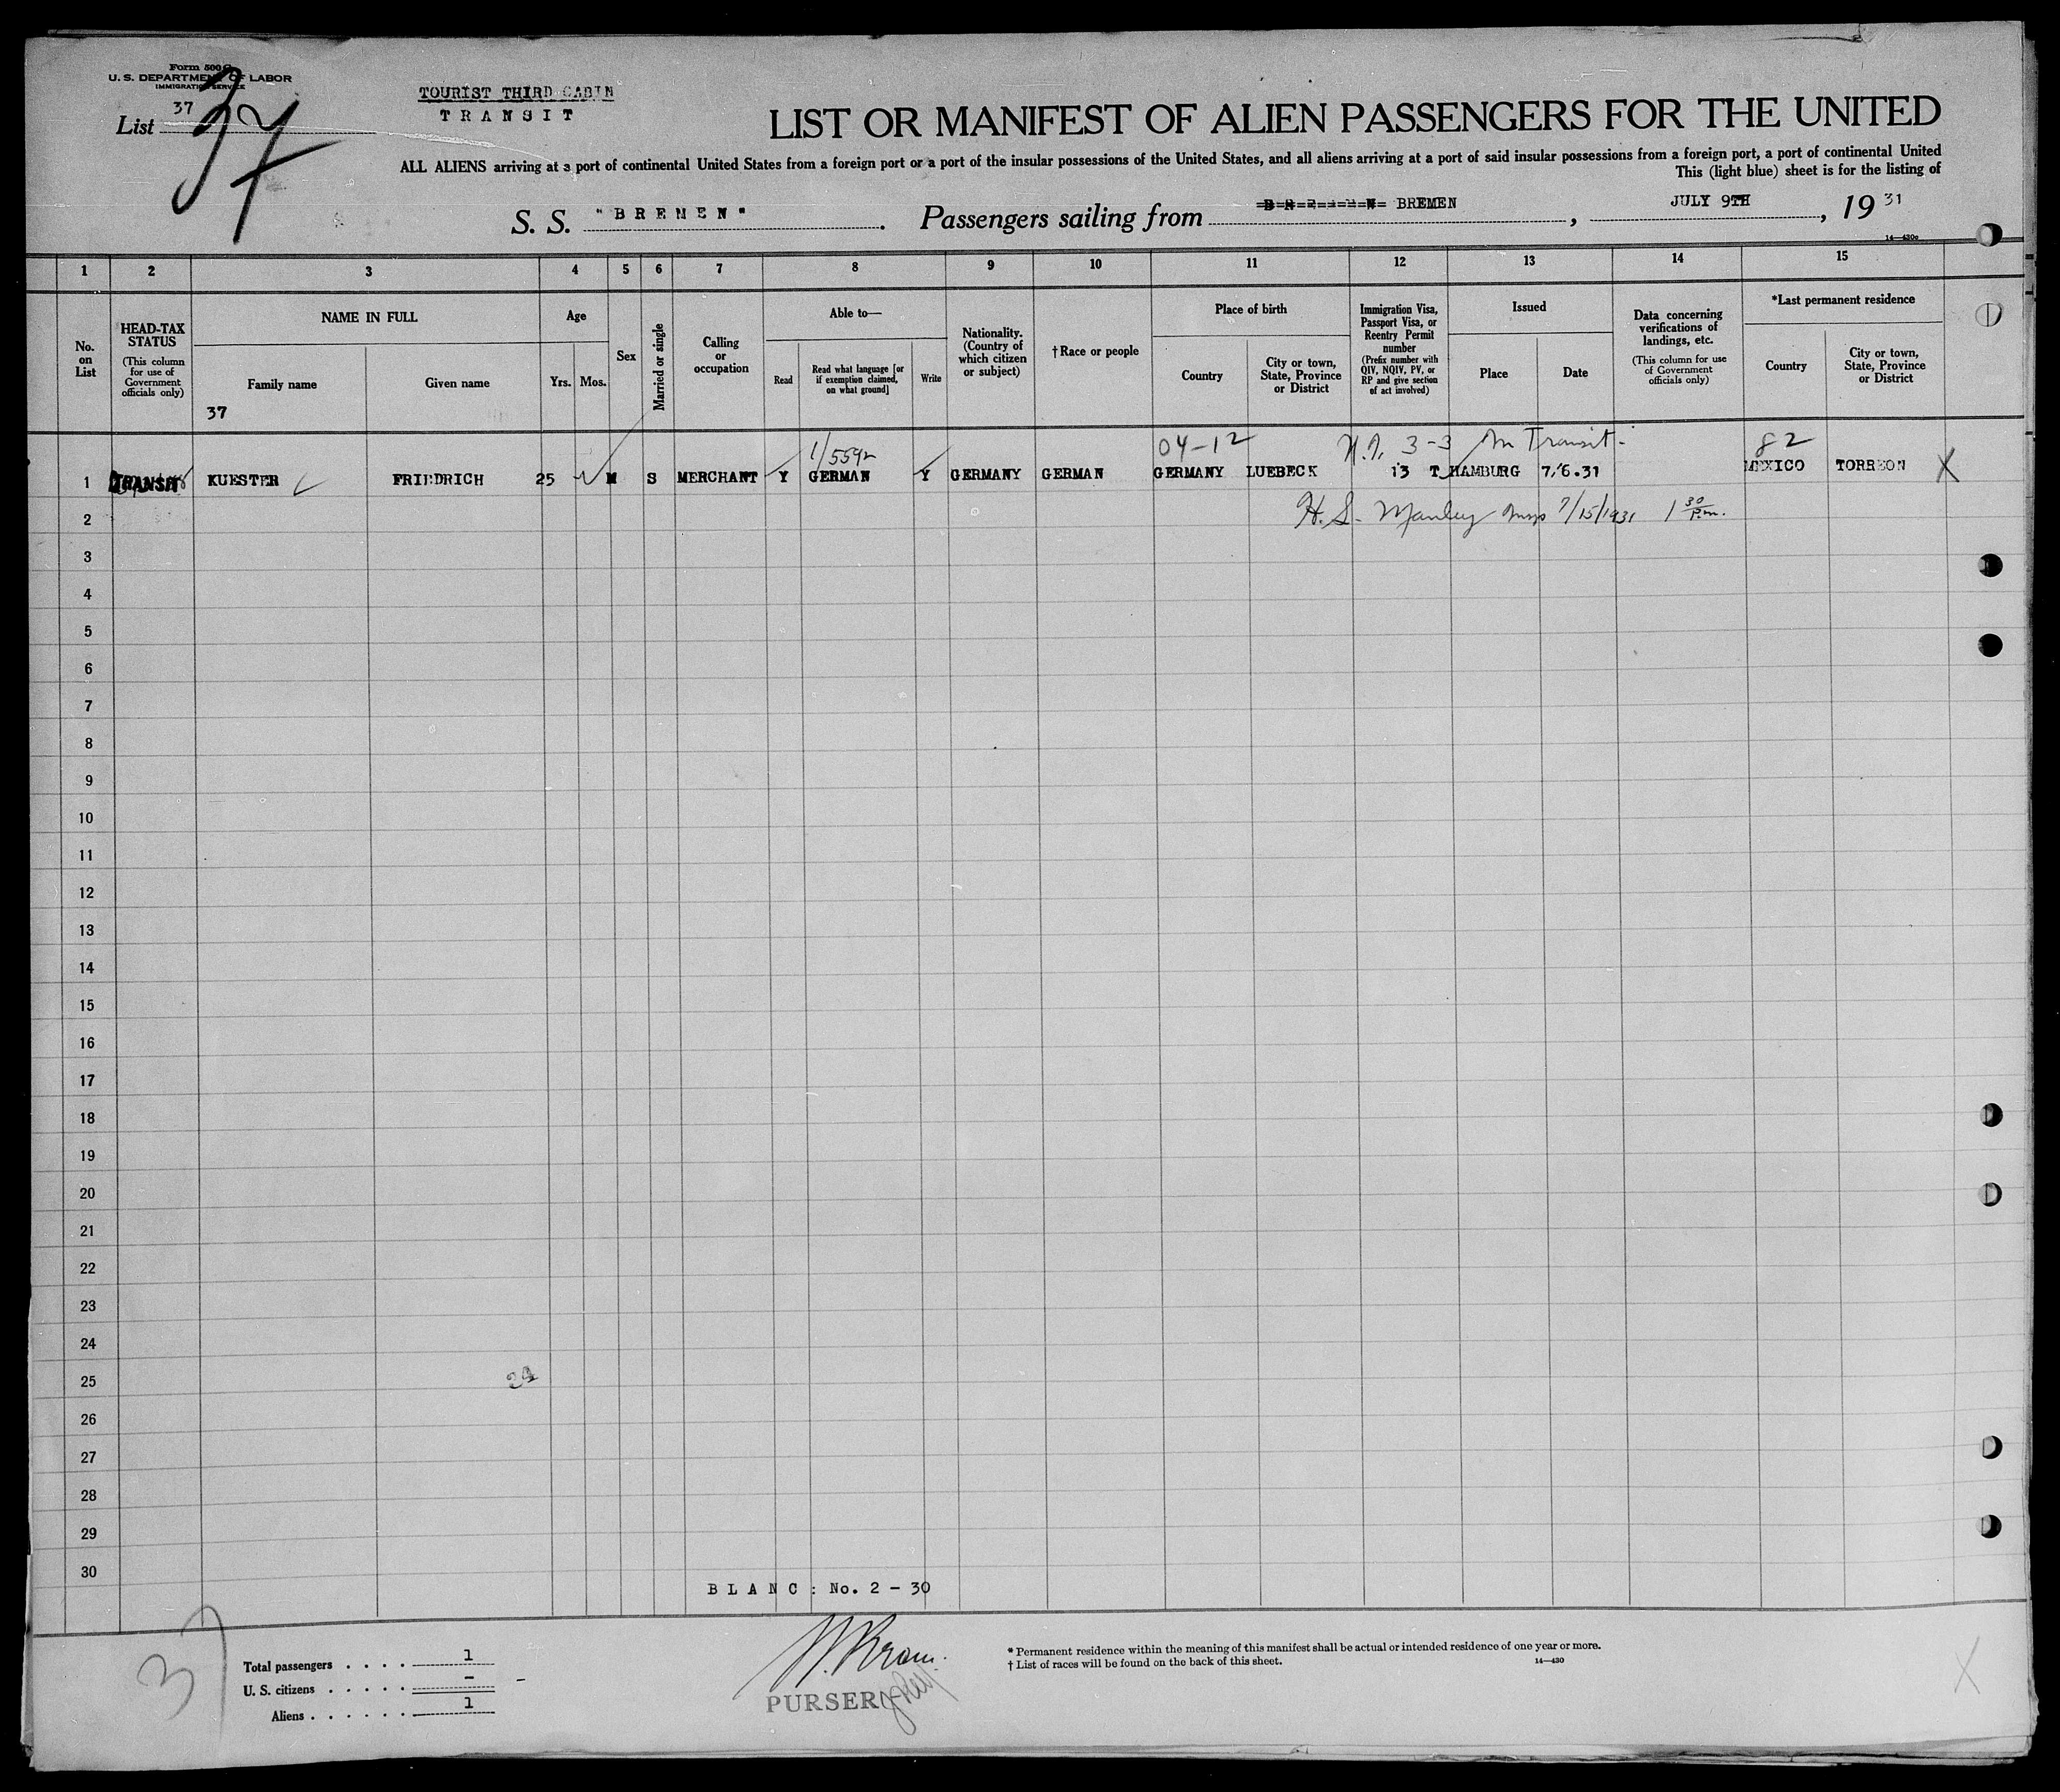 Form 500 C
U. S. DEPARTMENT OF LABOR
IMMIGRATION SERVICE
List 37
37
TOURIST THIRD CABIN
TRANSIT
LIST OR MANIFEST OF ALIEN PASSENGERS FOR THE UNITED
ALL ALIENS arriving at a port of continental United States from a foreign port or a port of the insular possessions of the United States, and all aliens arriving at a port of said insular possessions from a foreign port, a port of continental United
This (light blue) sheet is for the listing of
S. S. "BREMEN". Passengers sailing from BREMEN, JULY 9TH, 19 31
14—430c
1 2 3 4 5 6 7 8 9 10 11 12 13 14 15
No. on List
HEAD-TAX STATUS
(This column for use of Government officials only)
NAME IN FULL
Family name
Given name
37
Age
Yrs. Mos.
Sex
Married or single
Calling or occupation
Able to—
Read
Read what language [or if exemption claimed, on what ground]
Write
Nationality. (Country of which citizen or subject)
†Race or people
Place of birth
Country
City or town, State, Province or District
Immigration Visa, Passport Visa, or Reentry Permit number
(Prefix number with QIV, NQIV, PV, or RP and give section of act involved)
Issued
Place
Date
Data concerning verifications of landings, etc.
(This column for use of Government officials only)
*Last permanent residence
Country
City or town, State, Province or District
04-12 3-3 In Transit- 82
1 TRANSIT KUESTER FRIEDRICH 25 M S MERCHANT Y GERMAN Y GERMANY GERMAN GERMANY LUEBECK 13 T HAMBURG 7.6.31 MEXICO TORREON X
2 H. S. Manley 7/15/1931 1 30 P.m.
3
4
5
6
7
8
9
10
11
12
13
14
15
16
17
18
19
20
21
22
23
24
25
26
27
28
29
30
BLANC: No. 2 - 30
37
Total passengers . . . . 1
U. S. citizens . . . . . –
Aliens . . . . . . 1
PURSER
* Permanent residence within the meaning of this manifest shall be actual or intended residence of one year or more.
† List of races will be found on the back of this sheet.
14—430
X